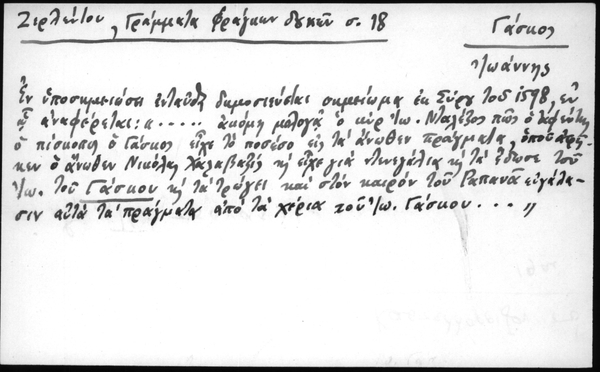 Ζερλέντου, Γράμματα Φράγκων δουκῶν σ. 18
Γάσκος
Ἰωάννης
Ἐν ὑποσημειώσει ἐνταῦθα δημοσιεύεται σημείωμα ἐκ Σύρου τοῦ 1598, ἐν
ᾧ ἀναφέρεται: "..... ἀκόμη μολογᾶ ὁ κὺρ Ἰω. Νταλέζος πῶς ὁ ἀφέντης
ὁ πίσκοπος ὁ Γάσκος εἶχε τὸ ποσέσο εἰς τὰ ἄνωθεν πράγματα, ὁποῦ
κεν ὁ ἄνωθεν Νικόλας Χαλαβαζῆς κὴ εἶχε γιὰ ντενεγάλια κὴ τὰ ἔδωσε τοῦ
Ἰω. τοῦ Γάσκου κὴ τὰ τρώγει καὶ στὸν καιρὸν τοῦ Γαπανᾶ εὐγάλα-
σιν αὐτὰ τὰ πράγματα ἀπὸ τὰ χέρια τοῦ Ἰω. Γάσκου...„